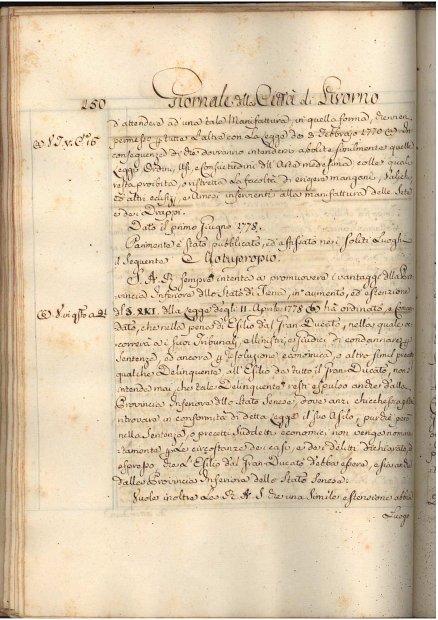 250 Giornale della Città di Livorno
d'attendere ad una tale Manifattura, in quella forma, che vien
permesso tutte l'altre con La Legge de 3. Febbrajo 1770
conseguenza di che dovranno intendersi abolite simil mente quelle
Leggi, Ordini, Usi, e consuetudini dell'Arte medesima colle quali
resta proibita, o ristretta La facoltà di erigere mangani,
ed altri edifizj, e Arnesi inservienti alla manifattura delle Sete
e dei Drappi.
Dato il primo Giugno 1778.
Parimente è stato pubblicato, ed affissato nei soliti Luoghi
il seguente Motuproprio.
S. A. R. sempre intenta a promuovere i vantaggi della Pro
vincia Inferiore dello Stato di Siena, in aumento, ed estensione
del § XXI. della Legge degli 11. Aprile 1778 ha ordinato, e
dato, che nella pena di Esilio dal Gran Ducato, nella quale
correrà ai suoi Tribunali, e Ministri, e Giudici di condannare
Sentenza, ed ancora risoluzione economica, o altro simil
qualche Delinquente all'Esilio da tutto il Gran Ducato, non
intenda mai, che tale Delinquente resti espulso anche dalla
Provincia Inferiore dello Stato Senese, dove anzi chicchessia
ritrovare in conformità di detta Legge il suo Asilo, purchè però
nella Sentenza, o precetti suddetti economici non venga
tamente Le circostanze dei casi, e dei delitti dichiarato
espresso che L'Esilio dal Gran Ducato debba essere, e si
dalla Provincia Inferiore dello Stato Senese.
Vuole inoltre La R. A. S. che una simile estensione abbia
Luogo